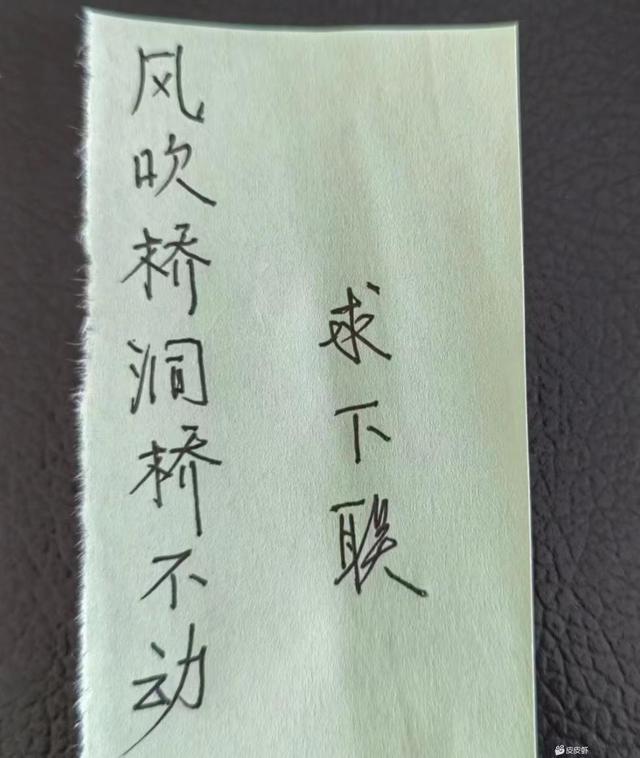 风吹桥洞桥不动
求下联
皮皮虾